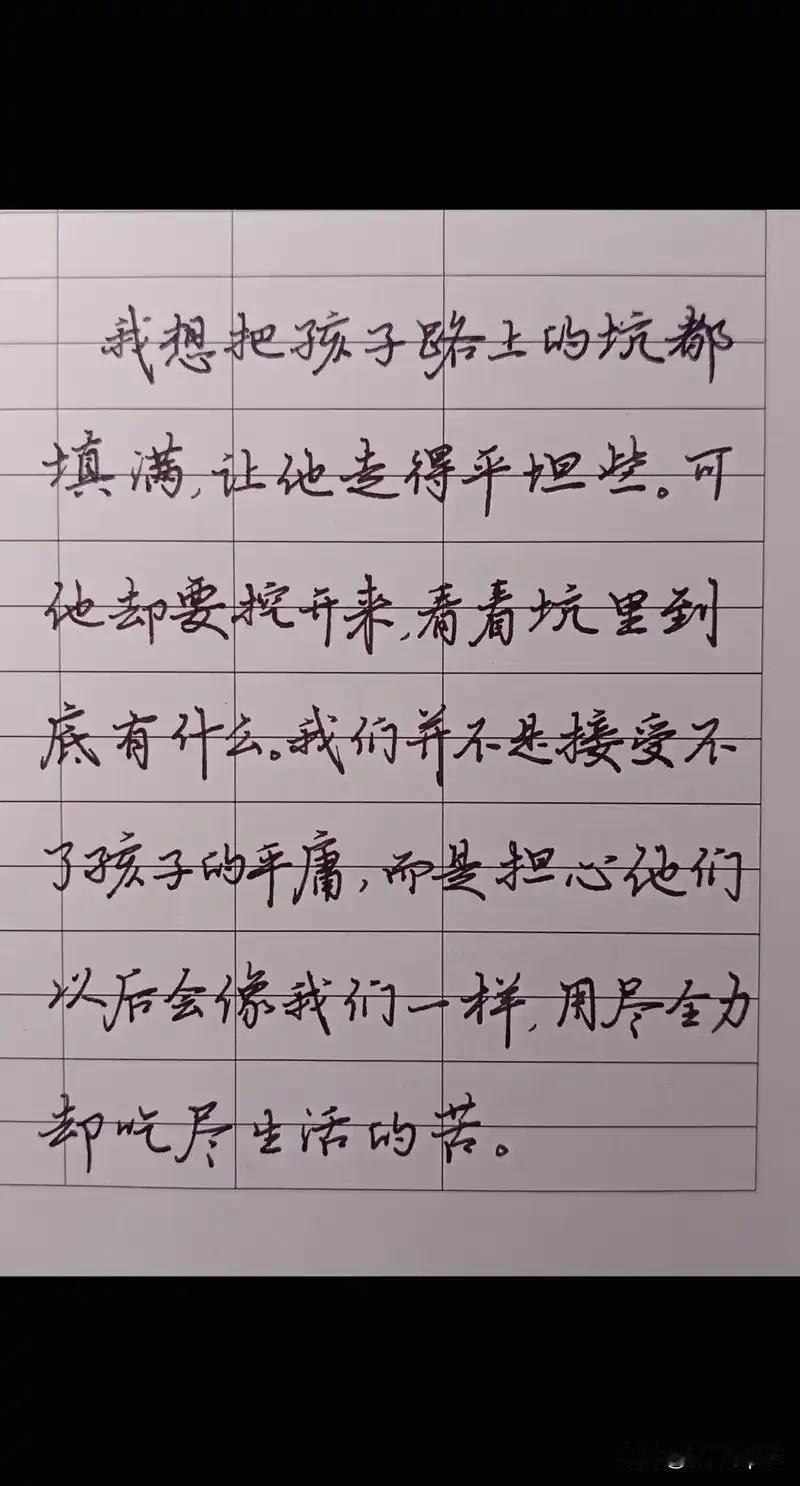 我想把孩子路上的坑都
填满,让他走得平坦些。可
他却要挖开来,看看坑里到
底有什么。我们并不是接受不
了孩子的平庸,而是担心他们
以后会像我们一样,用尽全力
却吃尽生活的苦。